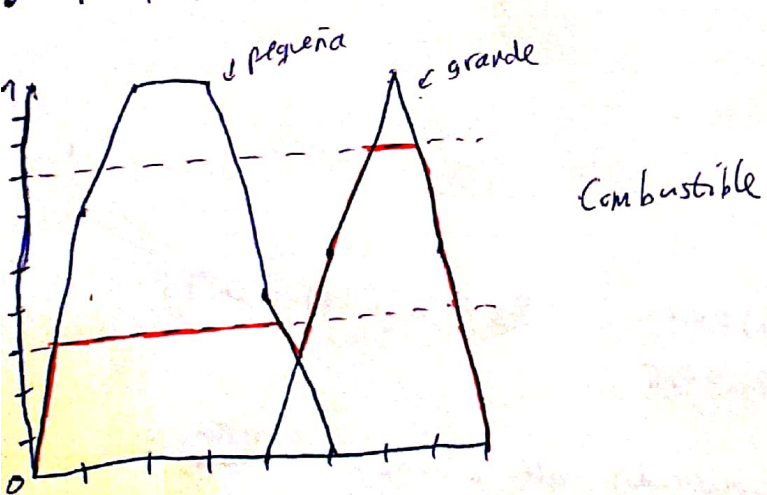 pequeña
grande
1
Combustible
0